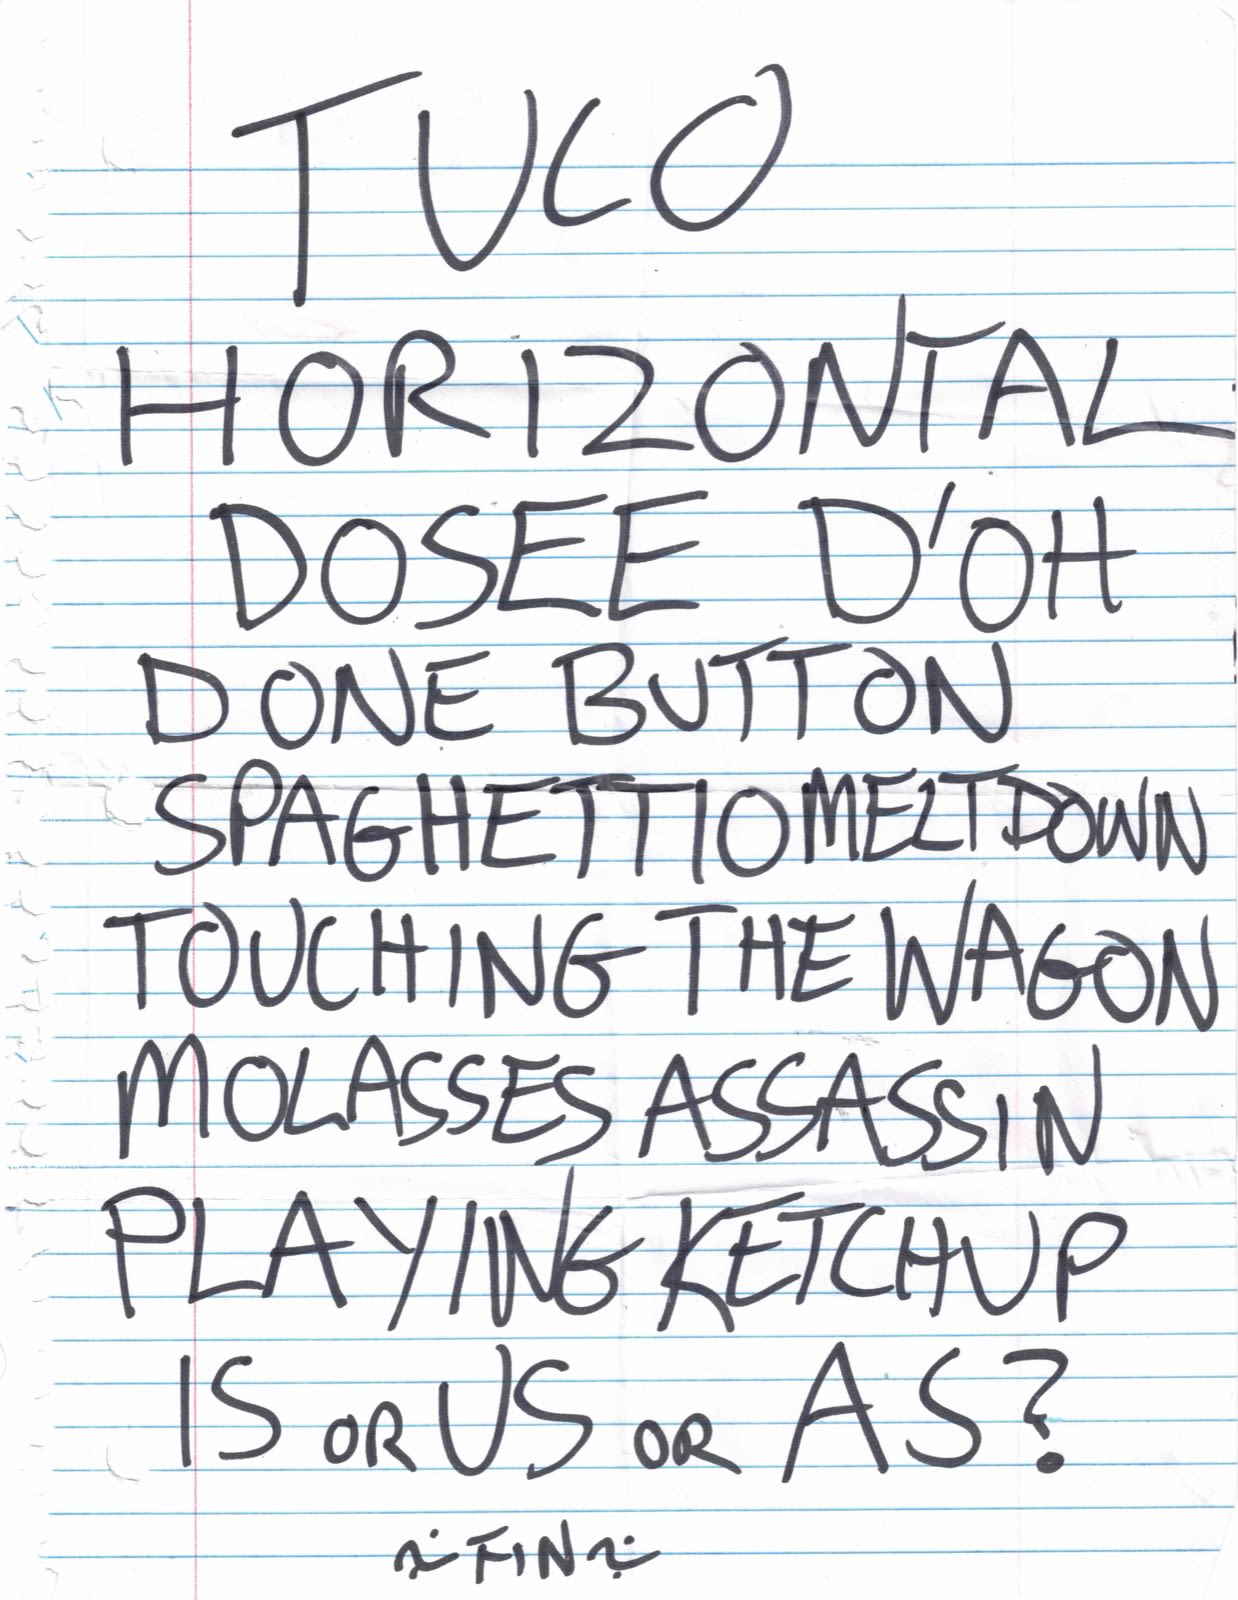 TUCO
HORIZONTAL
DOSEE D'OH
DONE BUTTON
SPAGHETTIO MELTDOWN
TOUCHING THE WAGON
MOLASSES ASSASSIN
PLAYING KETCHUP
IS OR US OR AS?
~FIN~